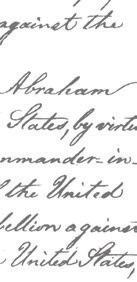 against the
Abraham
States, by virtu
nmander-in-
f the United
bellion against
United States,